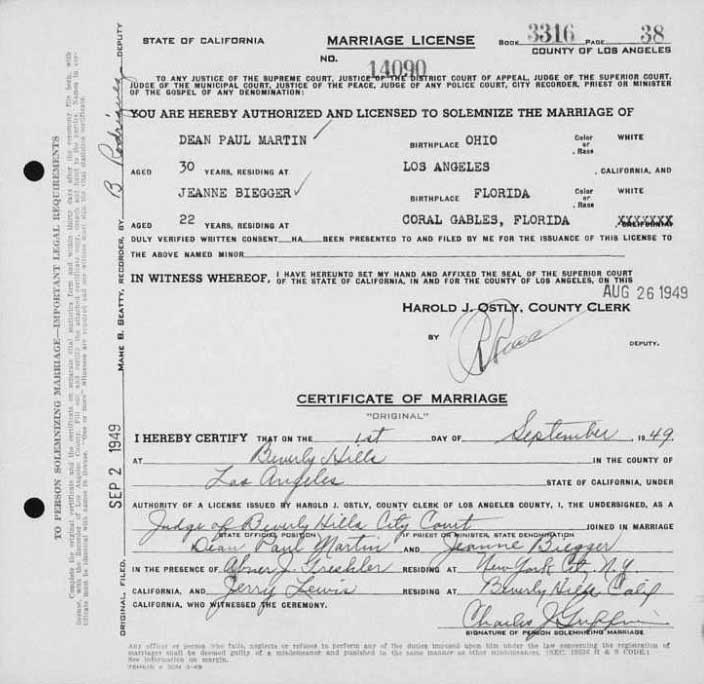 STATE OF CALIFORNIA MARRIAGE LICENSE BOOK 3316 PAGE 38
COUNTY OF LOS ANGELES
NO. 14090
TO ANY JUSTICE OF THE SUPREME COURT, JUSTICE OF THE DISTRICT COURT OF APPEAL, JUDGE OF THE SUPERIOR COURT,
JUDGE OF THE MUNICIPAL COURT, JUSTICE OF THE PEACE, JUDGE OF ANY POLICE COURT, CITY RECORDER, PRIEST OR MINISTER
OF THE GOSPEL OF ANY DENOMINATION:
YOU ARE HEREBY AUTHORIZED AND LICENSED TO SOLEMNIZE THE MARRIAGE OF
DEAN PAUL MARTIN BIRTHPLACE OHIO Color or Race WHITE
AGED 30 YEARS, RESIDING AT LOS ANGELES , CALIFORNIA, AND
JEANNE BIEGGER BIRTHPLACE FLORIDA Color or Race WHITE
AGED 22 YEARS, RESIDING AT CORAL GABLES, FLORIDA XXXXXXX
DULY VERIFIED WRITTEN CONSENT HA BEEN PRESENTED TO AND FILED BY ME FOR THE ISSUANCE OF THIS LICENSE TO
THE ABOVE NAMED MINOR
IN WITNESS WHEREOF, I HAVE HEREUNTO SET MY HAND AND AFFIXED THE SEAL OF THE SUPERIOR COURT
OF THE STATE OF CALIFORNIA, IN AND FOR THE COUNTY OF LOS ANGELES, ON THIS
AUG 26 1949
HAROLD J. OSTLY, COUNTY CLERK
BY DEPUTY.
CERTIFICATE OF MARRIAGE
"ORIGINAL"
I HEREBY CERTIFY THAT ON THE 1st DAY OF September 1949
AT Beverly Hills IN THE COUNTY OF
Los Angeles STATE OF CALIFORNIA, UNDER
AUTHORITY OF A LICENSE ISSUED BY HAROLD J. OSTLY, COUNTY CLERK OF LOS ANGELES COUNTY, I, THE UNDERSIGNED, AS A
Judge of Beverly Hills City Court JOINED IN MARRIAGE
STATE OFFICIAL POSITION IF PRIEST OR MINISTER, STATE DENOMINATION
Dean Paul Martin AND Jeanne Biegger
IN THE PRESENCE OF Abner J. Greshler RESIDING AT New York City, N.Y.
CALIFORNIA, AND Jerry Lewis RESIDING AT Beverly Hills Calif
CALIFORNIA, WHO WITNESSED THE CEREMONY.
Charles J. Griffin
SIGNATURE OF PERSON SOLEMNIZING MARRIAGE
Any officer or person who fails, neglects or refuses to perform any of the duties imposed upon him under the law concerning the registration of
marriages shall be deemed guilty of a misdemeanor and punished in the same manner as other misdemeanors. (SEC. H & S CODE.)
See information on margin.
ORIGINAL FILED. SEP 2 1949 MAME B. BEATTY, RECORDER, BY B Rodriguez DEPUTY
TO PERSON SOLEMNIZING MARRIAGE—IMPORTANT LEGAL REQUIREMENTS